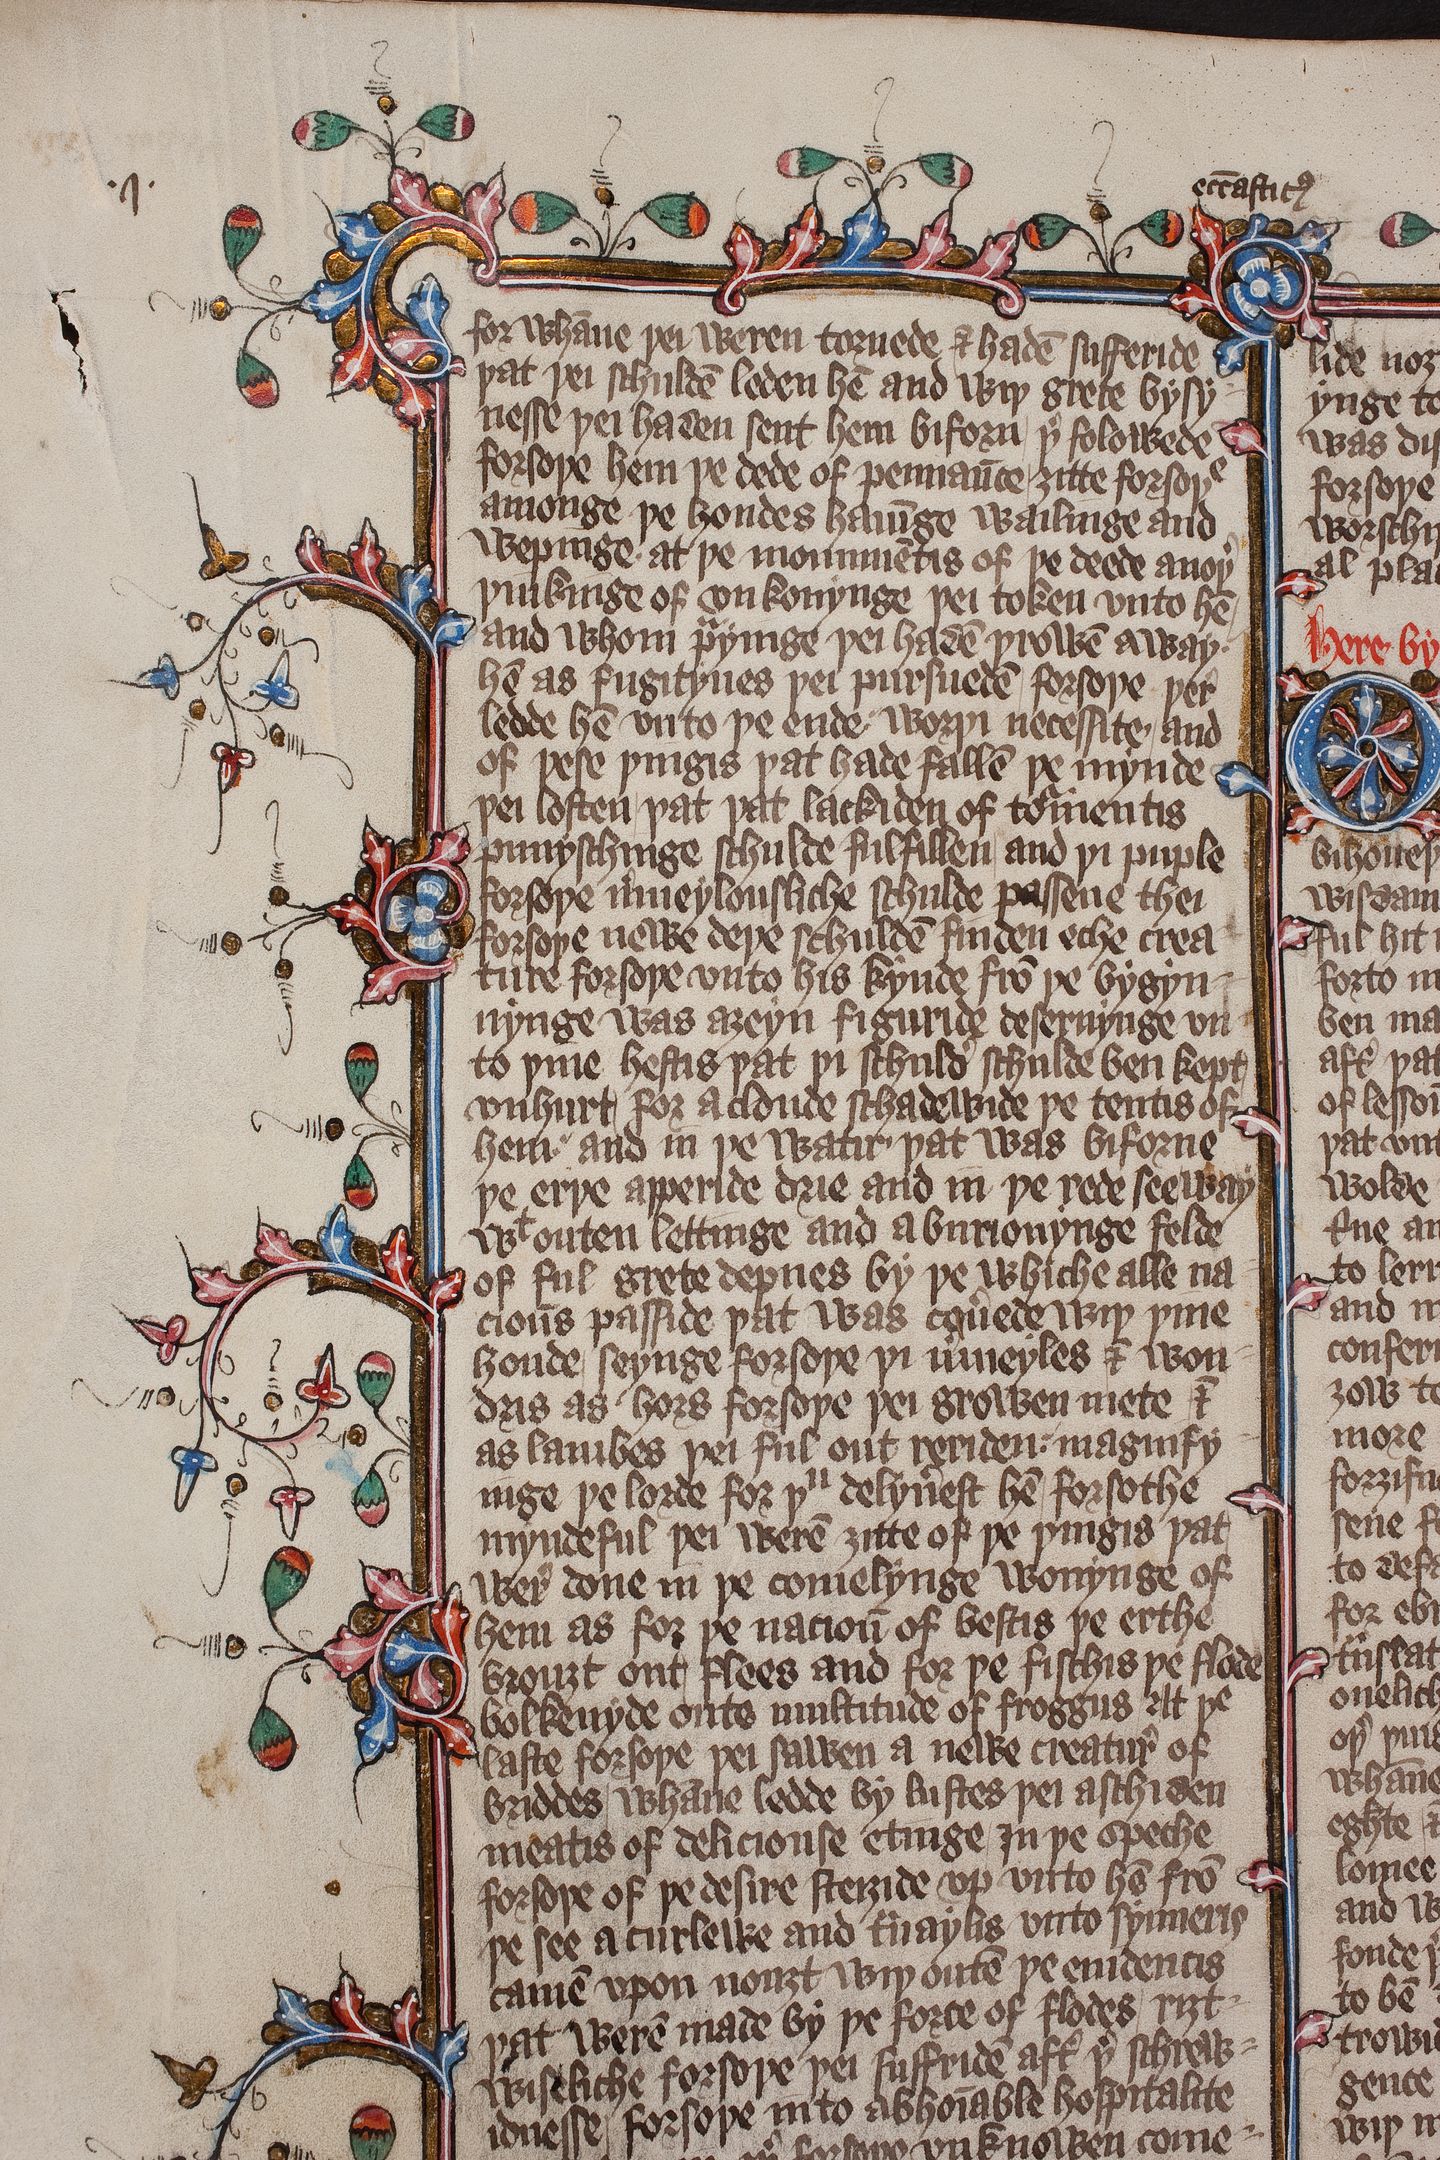 ·1·
ecc̄astic9
for whāne þei weren torned ⁊ hadē sufferide
þat þei schuldē leden hē and wiþ grete bysy
nesse þei haden sent hem biforn / þ folowede
forsoþe hem þe dede of pennaūce / ȝitte forsoþe
amonge þe hondes hauīge wailinge and
wepinge · at þe monumētis of þe deede anoþ
þinkinge of vnkonynge þei token vnto hē /
and whom p̄yinge þei hadē þrowē away ·
hē as fugityues þei pursuedē / forsoþe þer
ledde hē vnto þe ende · worþi necessite / and
of þese þingis þat hade fallē þe mynde
þei losten / þat þat lackiden of tormentis
punyschinge schulde fulfillen / and þi puple
forsoþe merueylousliche schulde passene thei
forsoþe newe deþe schuldē finden eche crea
ture forsoþe vnto his kynde frō þe bygyn-
nynge was aȝeyn figuride deseruynge vn
to þine hestis þat þi schuld schulde ben kept
vnhurt / for a cloude schadewide þe tentis of
hem · and in þe watir · þat was biforne
þe erþe apperide drie and in þe rede see way
wt outen lettinge and a burionynge felde
of ful grete depnes by þe whiche alle na-
ciouns passide þat was couerede wiþ þine
honde / seynge forsoþe þi merueyles ⁊ won-
dris as hors forsoþe þei growen mete ⁊
as lambes þei ful out ioyiden · magnify
inge þe lorde for þu delyuerest hē / forsothe
myndeful þei werē ȝitte of þe þingis þat
wer done in þe comelynge wonynge of
hem as for þe nacioū of bestis þe erthe
brouȝt out / flees and for þe fischis þe flode
bolkenyde oute multitude of froggus At þe
laste forsoþe þei sawen a newe creatur of
briddes / whāne ledde by lustes þei aschiden
meatis of deliciouse etinge / In þe speche
forsoþe of þe desire steiȝide vp vnto hē frō
þe see a curlewe and trauaylis vnto synneris
camē vpon nouȝt wiþ outē þe euidencis
þat werē made by þe force of flodes / riȝt-
wisliche forsoþe þei suffridē aft þ schrew-
idnesse / forsoþe into abhoīable hospitalite
forsoþe vnknowen come-
lide nor
ynge to
was dis
forsoþe
worschi
al plac
Here by
O
bihoueþ
wisdam
ful hit
forto
ben ma
aft þat
of lesson
þat
wolde
⁊ne an
to lerr
and
confer
ȝow to
more
forȝifu
sene
to defa
for ebr
translat
onelich
oþ þing
whāne
eghte
lomee
and w
fonde
to bē
trowid
gence
wiþ